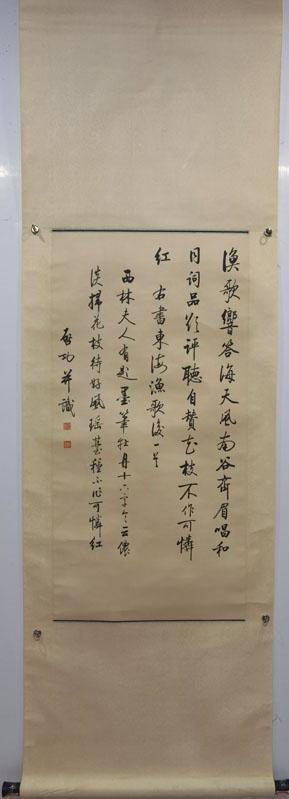 漁歌響答海天風南谷齊眉唱和
同詞品欲評聽自贊花枝不作可憐
紅 右書東海漁歌後一首
西林夫人有題墨筆牡丹十六字令云儂
淡掃花枝待好風瑤臺種不作可憐紅
啟功并識